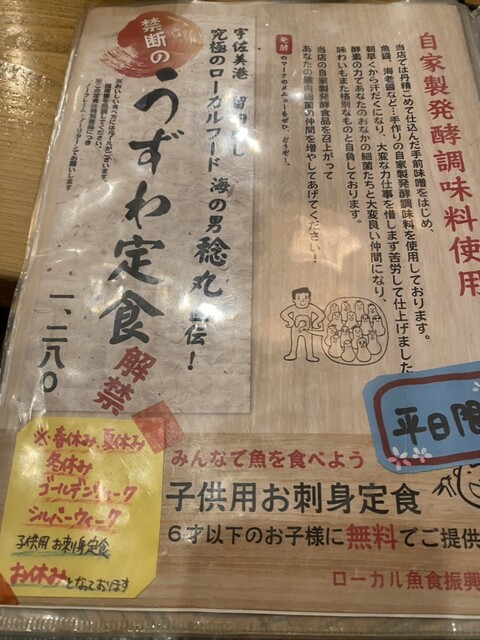 自家製発酵調味料使用
当店では丹精こめて仕込んだ手前味噌をはじめ、
魚醤、海老醤など…手作りの自家製発酵調味料を使用しております。
朝早くから汗だくになり、大変な力仕事を惜しまず苦労して仕上げました
酵素の力であなたのおなかの細菌たちと大変良い仲間になり、
味わいもまた格別なものと自負しております。
当店の自家製発酵食品を召上がって
あなたの腸内細菌の仲間を増やしてあげてください！
発酵のマークのメニューをぜひ、どうぞ。
宇佐美港
究極のローカルフード 海の男 稔丸 直伝！
禁断の
うずわ定食
解禁
一、二八〇
※おいしい食べ方にはルールがございます。
平日限
みんなで魚を食べよう
子供用お刺身定食
6才以下のお子様に無料でご提供
ローカル魚食振興
※春休み、夏休み
冬休み
ゴールデンウィーク
シルバーウィーク
子供用お刺身定食
お休みとなっております